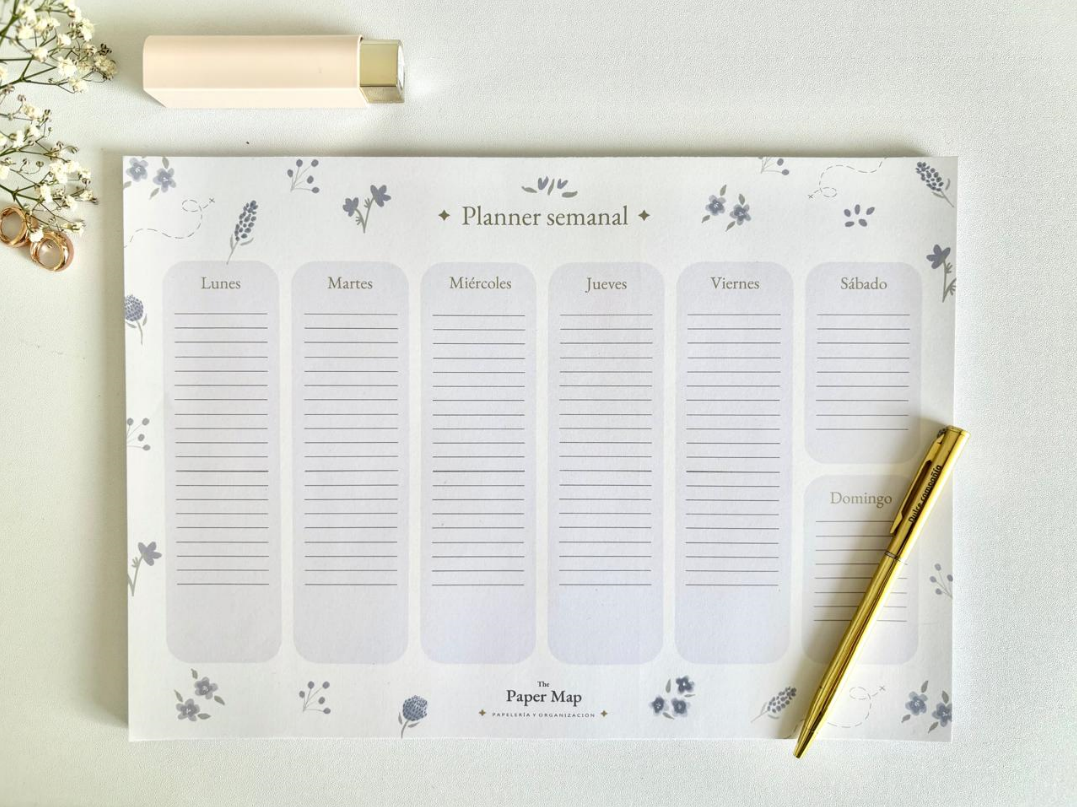 Planner semanal
Lunes
Martes
Miércoles
Jueves
Viernes
Sábado
Domingo
Dulce compañía
The
Paper Map
PAPELERÍA Y ORGANIZACIÓN